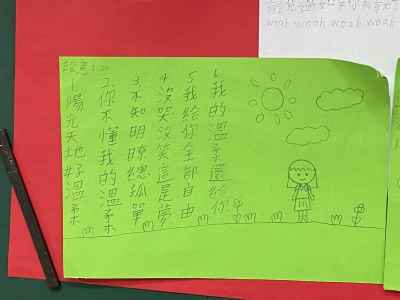 woah woah woah woah
1 陽光天地好溫柔
2 你不懂我的溫柔
3 不知明暸總孤單
4 沒哭沒笑這是夢
5 我給你全部自由
6 我的溫柔還給你